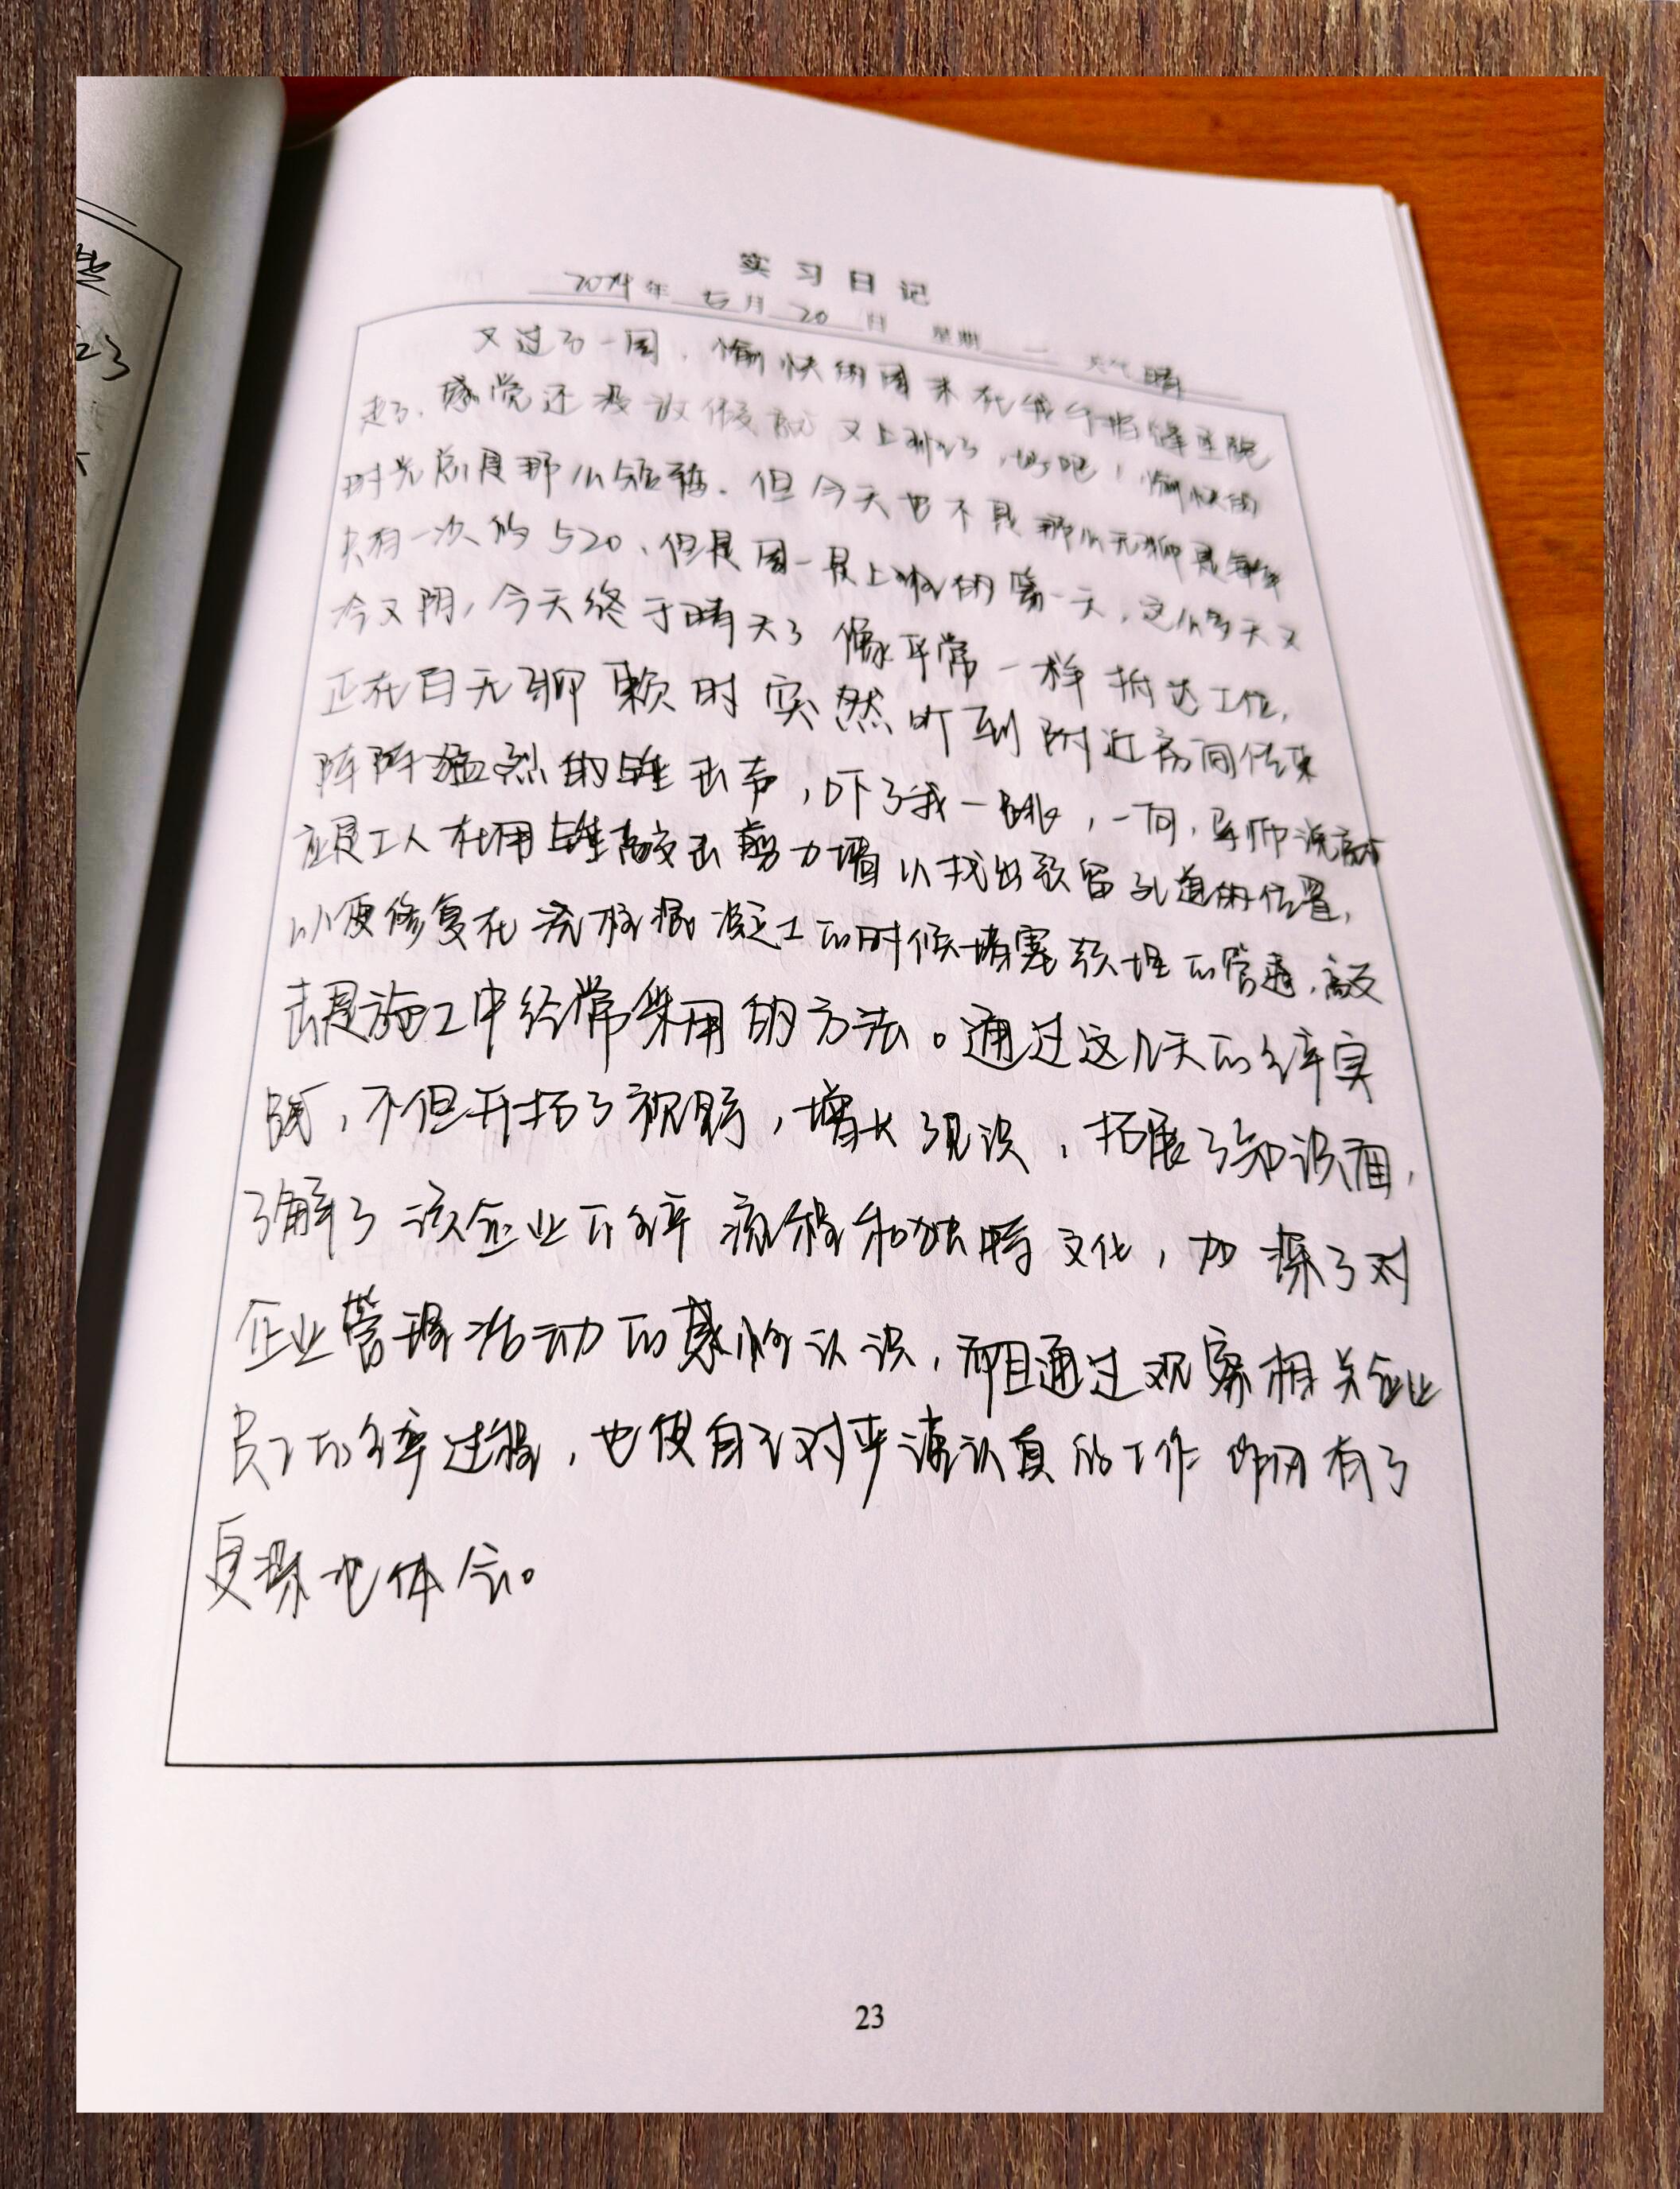 实习日记
年 五月 20 日 星期 一 天气 晴
又过了一周，愉快的周末在
走了，感觉还没放假就又上班了，好吧！愉快的
时光总是那么短暂。但今天也不是那么无聊是每年
只有一次的520，但是周一是上班的第一天，这么多天又
冷又阴，今天终于晴天了 像平常一样抵达工位，
正在百无聊赖时突然听到附近房间传来
阵阵猛烈的锤击声，吓了我一跳，一问，导师说
应是工人在用锤敲击剪力墙以找出预留孔道的位置，
以便修复在浇板混凝土的时候堵塞预埋的管道，敲
击是施工中经常采用的方法。通过这几天的生产实
践，不但开拓了视野，增长了见识，拓展了知识面，
了解了该企业的生产流程和独特文化，加深了对
企业管理活动的感性认识，而且通过观察相关企业
员工的生产过程，也使自己对严谨认真的工作作风有了
更深地体会。
23